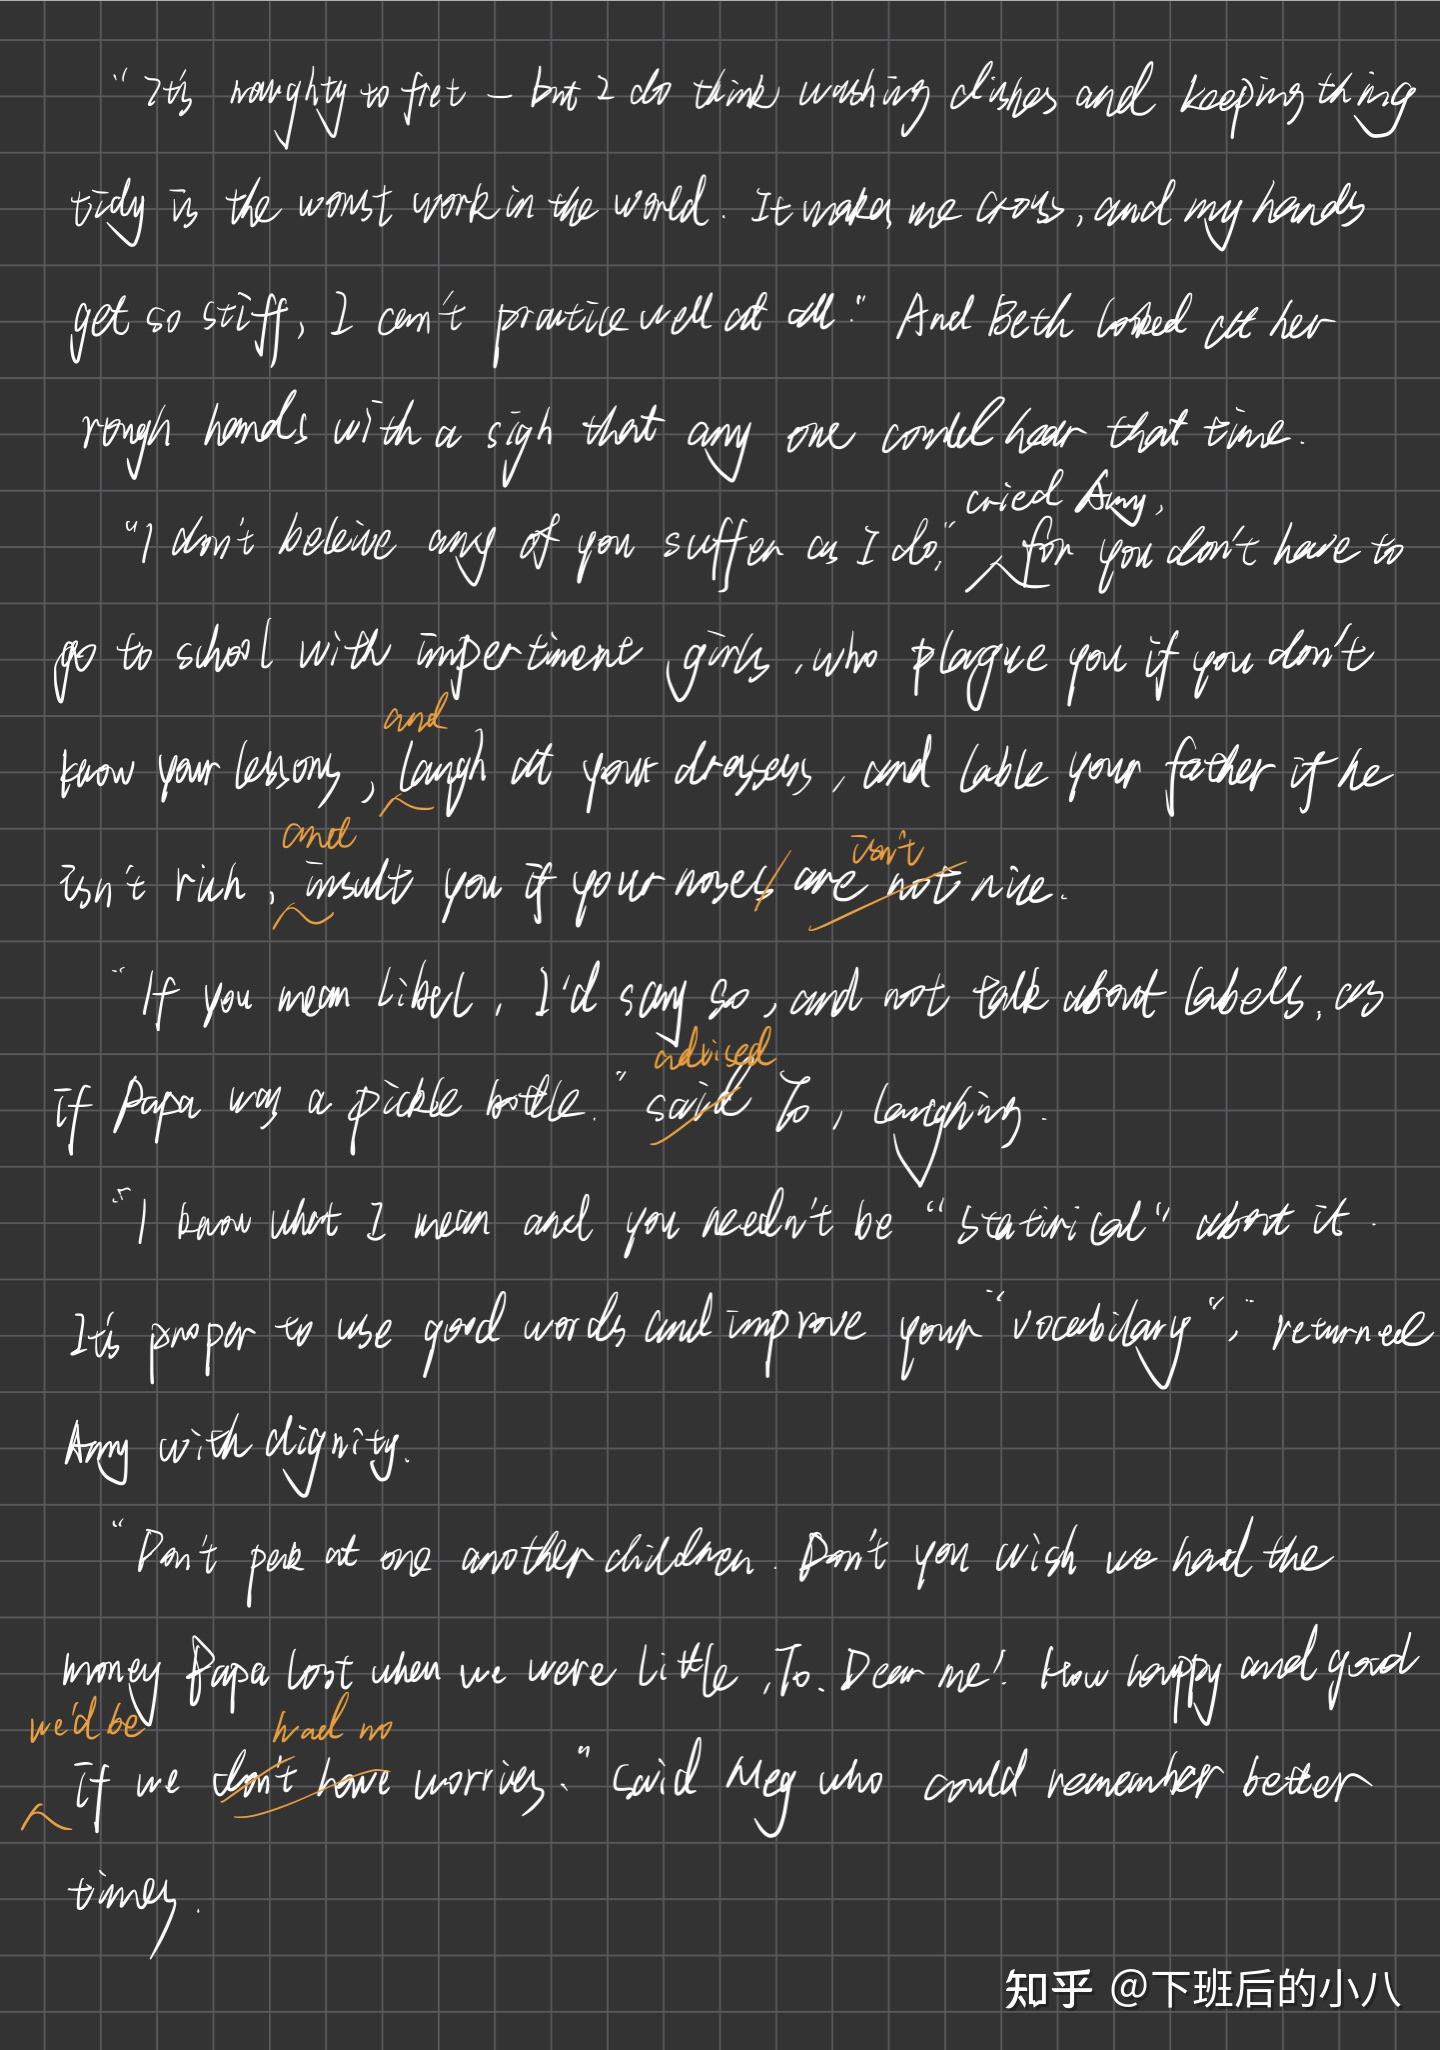 "It's naughty to fret — but I do think washing dishes and keeping thing
tidy is the worst work in the world. It makes me cross, and my hands
get so stiff, I can't practice well at all." And Beth looked at her
rough hands with a sigh that any one could hear that time.
cried Amy,
"I don't beleive any of you suffer as I do," for you don't have to
go to school with impertinent girls, who plague you if you don't
and
know your lessons, laugh at your dresses, and lable your father if he
and isn't
isn't rich, insult you if your noses are not nice.
"If you mean libel, I'd say so, and not talk about labels, as
advised
if Papa was a pickle bottle." said Jo, laughing.
"I know what I mean and you needn't be "statirical" about it.
It's proper to use good words and improve your "vocabilary"," returned
Amy with dignity.
"Don't peak at one another children. Don't you wish we had the
money Papa lost when we were little, Jo. Dear me! How happy and good
we'd be had no
if we don't have worries." said Meg who could remember better
times.
知乎 @下班后的小八